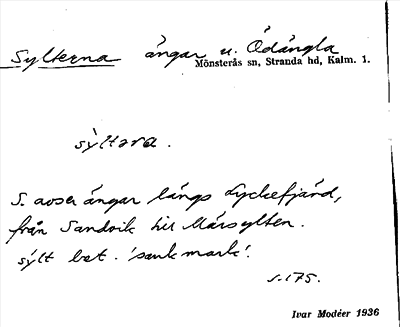 Sylterna ängar u. Ödängla
Mönsterås sn, Stranda hd, Kalm. l.
sỳltəra.
S. avser ängar längs Lyckefjärd,
från Sandvik till Mårsylten.
sylt bet. 'sank mark'.
s. 175.
Ivar Modéer 1936